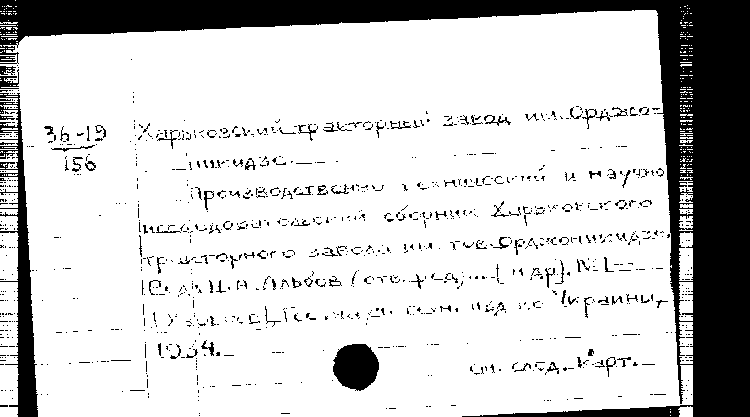 36-19
156
Харьковский тракторный завод им. Орджо-
никидзе.
Производственно технический и научно
исследовательский сборник Харьковского
тракторного завода им. тов. Орджоникидзе.
Н. А. Альбов (отв. ред) ... [и др]. №1-
[Харьков], Гос. изд. Украины,
1934.
см. след. карт.